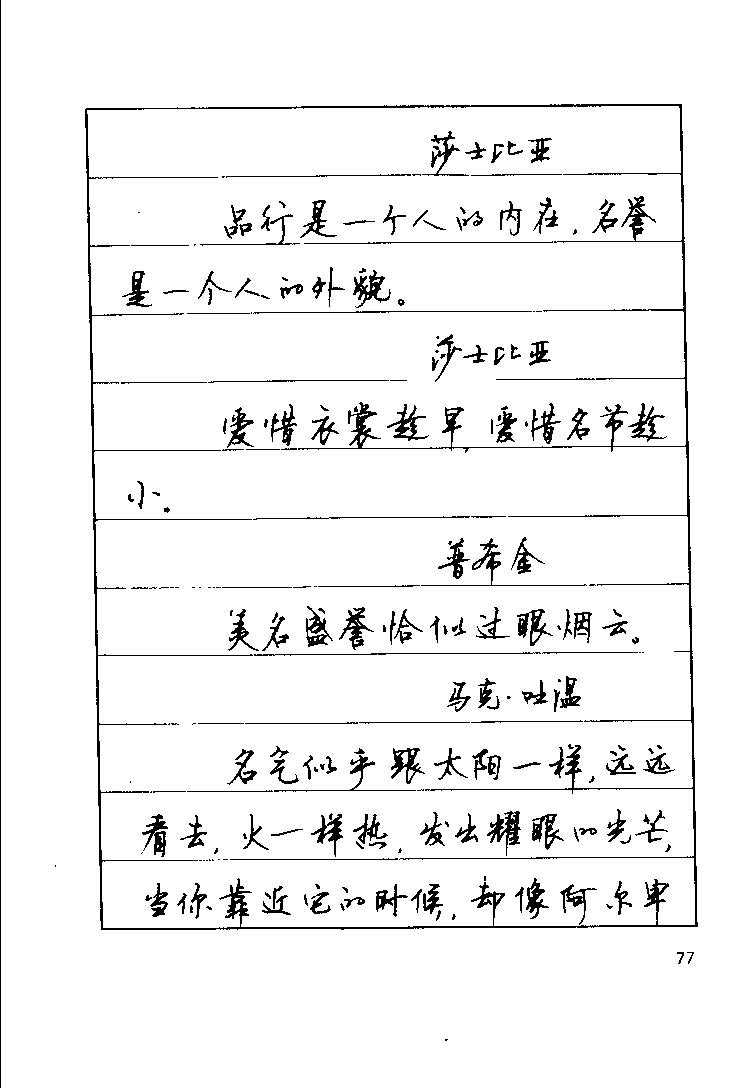 莎士比亚
品行是一个人的内在，名誉
是一个人的外貌。
莎士比亚
爱惜衣裳趁早，爱惜名节趁
小。
普希金
美名盛誉恰似过眼烟云。
马克·吐温
名气似乎跟太阳一样，远远
看去，火一样热，发出耀眼的光芒，
当你靠近它的时候，却像阿尔卑
77